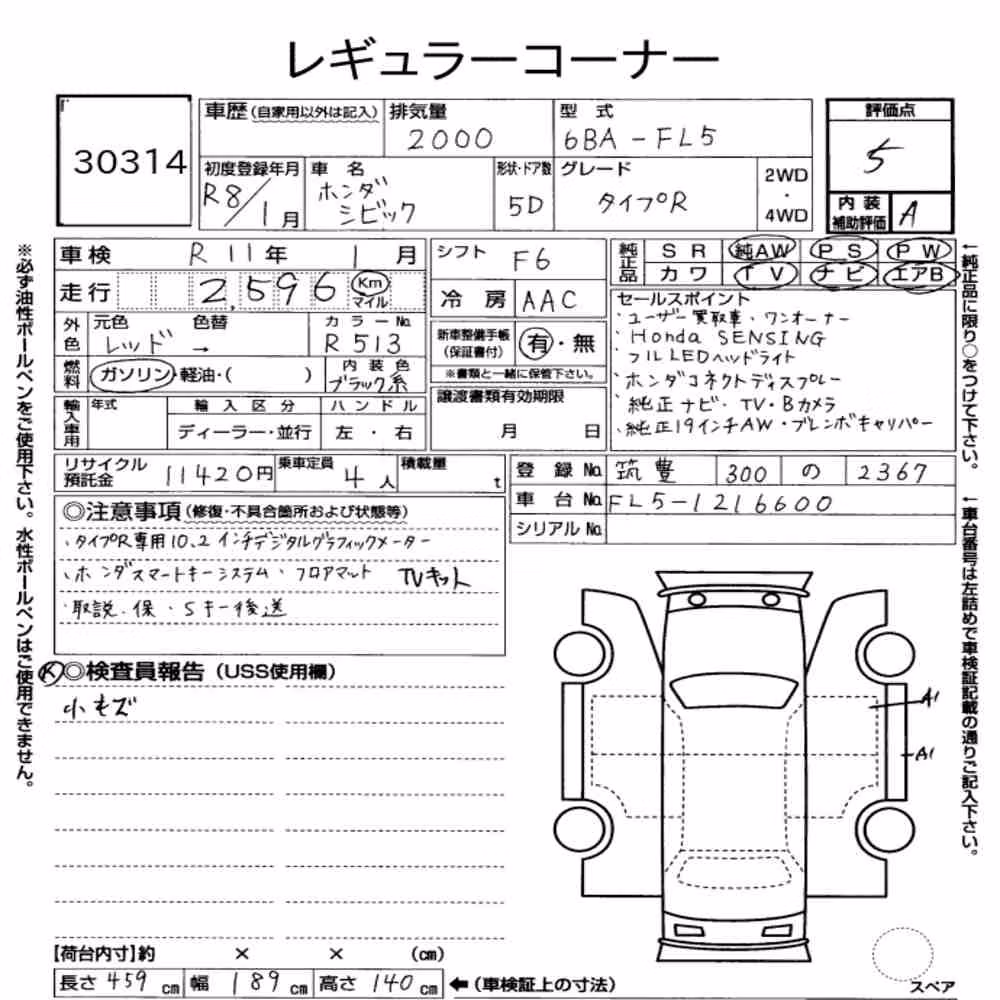 レギュラーコーナー
30314
車歴(自家用以外は記入)
排気量
2000
型式
6BA-FL5
評価点
5
初度登録年月
R8/1月
車名
ホンダ
シビック
形状・ドア数
5D
グレード
タイプR
2WD
・
4WD
内装
補助評価
A
車検 R11年 1月
シフト F6
純正品
SR 純AW PS PW
カワ TV ナビ エアB
走行 2,596 Km
マイル
冷房 AAC
セールスポイント
・ユーザー買取車・ワンオーナー
・Honda SENSING
・フルLEDヘッドライト
・ホンダコネクトディスプレー
・純正ナビ・TV・Bカメラ
・純正19インチAW・ブレンボキャリパー
外色
元色 色替
レッド →
カラーNo.
R513
新車整備手帳
(保証書付)
有・無
※書類と一緒に保管下さい。
燃料
ガソリン・軽油・( )
内装色
ブラック系
譲渡書類有効期限
月 日
輸入車用
年式
輸入区分
ハンドル
ディーラー・並行
左・右
リサイクル
預託金
11420円
乗車定員
4人
積載量
t
登録No. 筑豊 300 の 2367
車台No. FL5-1216600
シリアルNo.
◎注意事項(修復・不具合箇所および状態等)
・タイプR専用10.2インチデジタルグラフィックメーター
・ホンダスマートキーシステム・フロアマット TVキット
・取説・保・Sキー後送
◎検査員報告(USS使用欄)
小キズ
A1
A1
【荷台内寸】約 × × (cm)
長さ 459 cm 幅 189 cm 高さ 140 cm ←(車検証上の寸法)
スペア
※必ず油性ボールペンをご使用下さい。水性ボールペンはご使用できません。
←純正品に限り○をつけて下さい。
←車台番号は左詰めで車検証記載の通りご記入下さい。